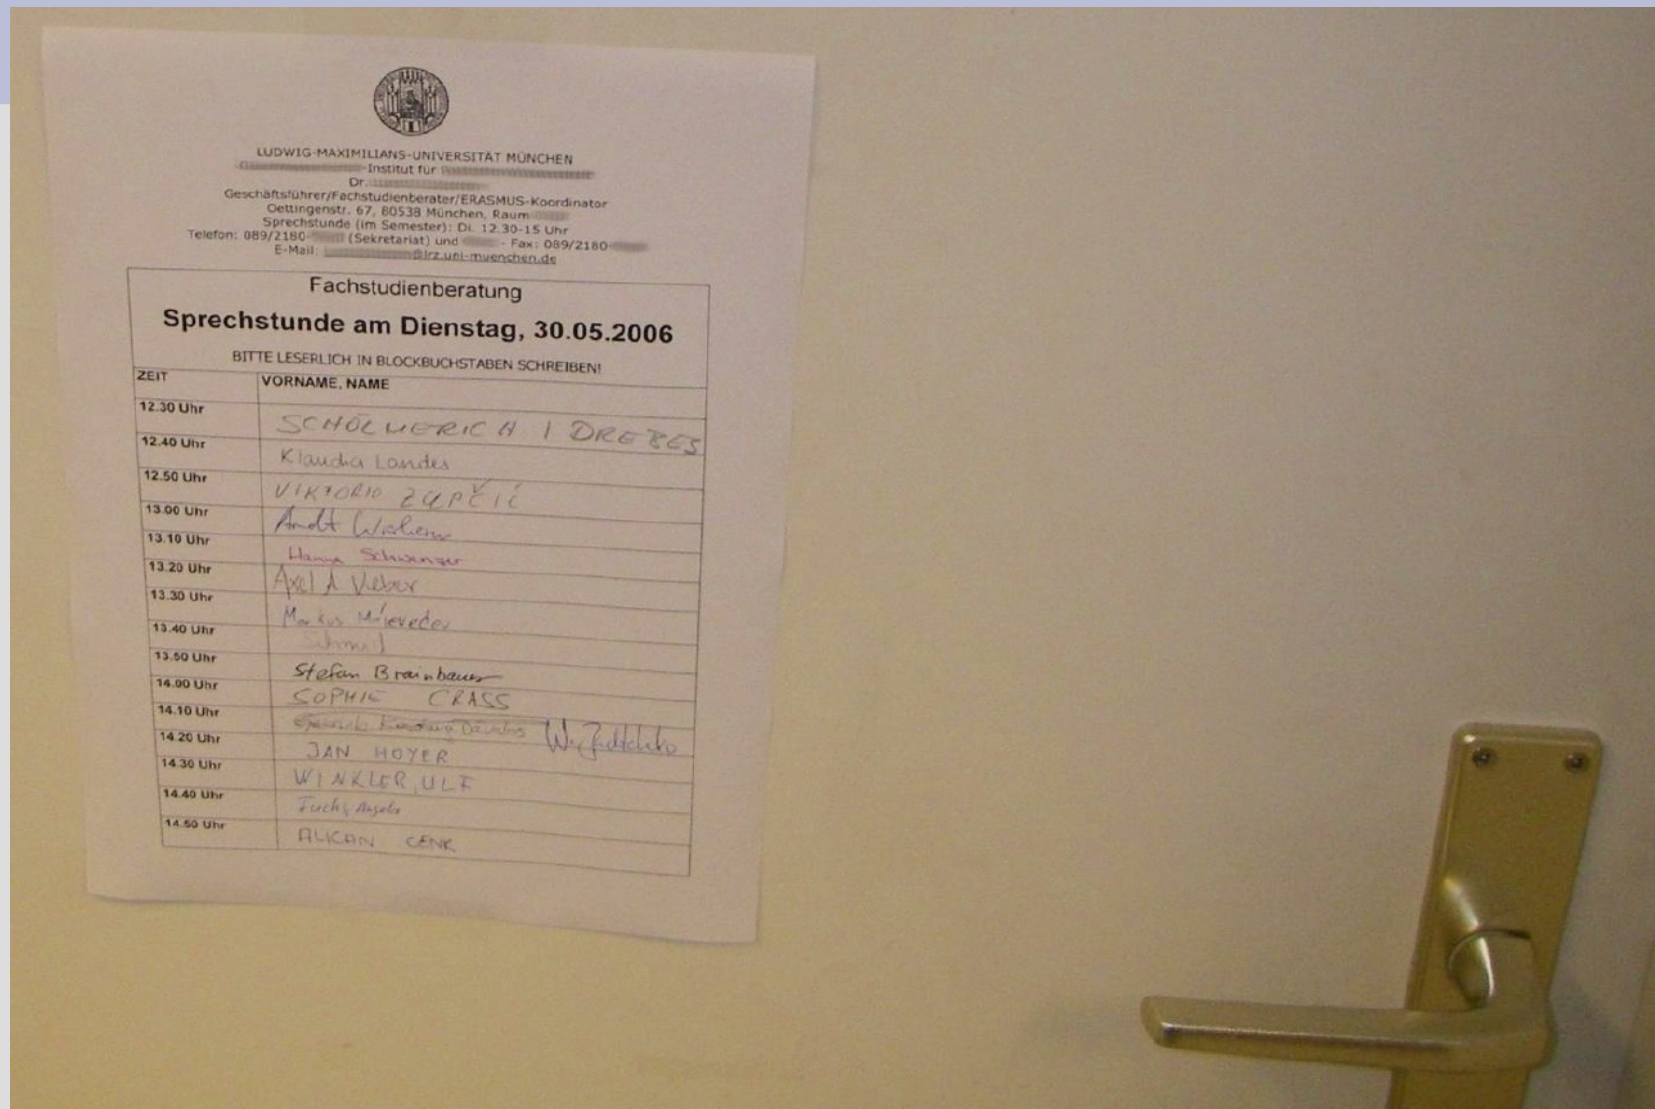 LUDWIG-MAXIMILIANS-UNIVERSITÄT MÜNCHEN
-Institut für
Dr.
Geschäftsführer/Fachstudienberater/ERASMUS-Koordinator
Oettingenstr. 67, 80538 München, Raum
Sprechstunde (im Semester): Di. 12.30-15 Uhr
Telefon: 089/2180- (Sekretariat) und - Fax: 089/2180-
E-Mail: @lrz.uni-muenchen.de
Fachstudienberatung
Sprechstunde am Dienstag, 30.05.2006
BITTE LESERLICH IN BLOCKBUCHSTABEN SCHREIBEN!
ZEIT VORNAME, NAME
12.30 Uhr SCHÖLMERICH / DREBES
12.40 Uhr Klaudia Landes
12.50 Uhr VIKTORIO ZUPČIĆ
13.00 Uhr Arndt
13.10 Uhr Schwenger
13.20 Uhr Axel A Weber
13.30 Uhr Markus
13.40 Uhr Schmid
13.50 Uhr Stefan Brainbauer
14.00 Uhr SOPHIE CRASS
14.10 Uhr
14.20 Uhr JAN HOYER
14.30 Uhr WINKLER, ULF
14.40 Uhr Fuchs, Angela
14.50 Uhr ALICAN CENK